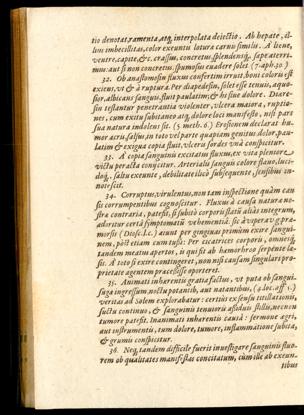 tio denotat, ramenta, atq, interpolata deiectio. Ab hepate, il-
lius imbecillitas, color exeuntis loturæ carnis similis. A liene,
ventre, capite, &c. crassus, concretus, splendensq́, sæpe aterri-
mus: aut si non concretus, spumosus evadere solet (7. aph. 30.)
32. Ob anastomosin fluxus confertim irruit, boni coloris est
exiens, vt & à ruptura. Per diapedesin, si let esse tenuis, aquo-
sior, albicans sanguis, fluit paulatim; & hoc sine dolore. Diære-
sin testantur penetrantia violenter, vlcera maiora, ruptio-
nes, cum exitu subitaneo atq, dolore loci manifesto, nisi pars
sua natura indolens sit. (5 meth. 6) Erosionem declarat hu-
mor acris, salsus, in toto vel parte quapiam genitus: dolor, pau-
latim & exigua copia fluit, vlceris sordes vnà conspicitur.
33. A copia sanguinis excitatus fluxus, ex vita pleniore
victu peracta coniicitur. Arterialis sanguis colore flavo, luci-
doq́, saltu exeunte, debilitate illicò subsequente, sensibus in-
notescit.
34. Corruptus, virulentus, non tam inspectione quàm cau-
sis corrumpentibus cognoscitur. Fluxus à causa natura no-
stra contraria, patefit, si subito corporis statu alias integrum,
adoritur certà symptomatis vehementià. sic à vipera: g pro-
morsis (Diosc. l.c.) aiunt per gingivas primùm exire sangui-
nem, pòst etiam cum tussi: Per cicatrices corporis, omnesq́,
tandem meatus apertos, is qui sit ab hæmorrhoo serpente læ-
sit. A toto si exire contingeret, non nisi causam singularis pro-
prietate agentem præcessisse oporteret.
35. Animati inhærentis gratia factus, vt puta ob sangui-
sugà ingressum, noctu potantib, aut natantibus, (4 dec. aff. c.)
veritas ad Solem explorabatur: certius ex sensu titillationis,
suctus continuo, & sanguinis tenuioris assiduis stillis, nec non
tumore patefit. Inanimati inhærentis causà: sermone ægri,
aut instrumentis, tum dolore, tumore, inflammatione subita,
& grumis conspicitur.
36. Neq, tandem difficile fuerit investigare sanguinis fluo-
rem ob qualitates manifestas concitatum, cùm ille ab exeun-
tibus